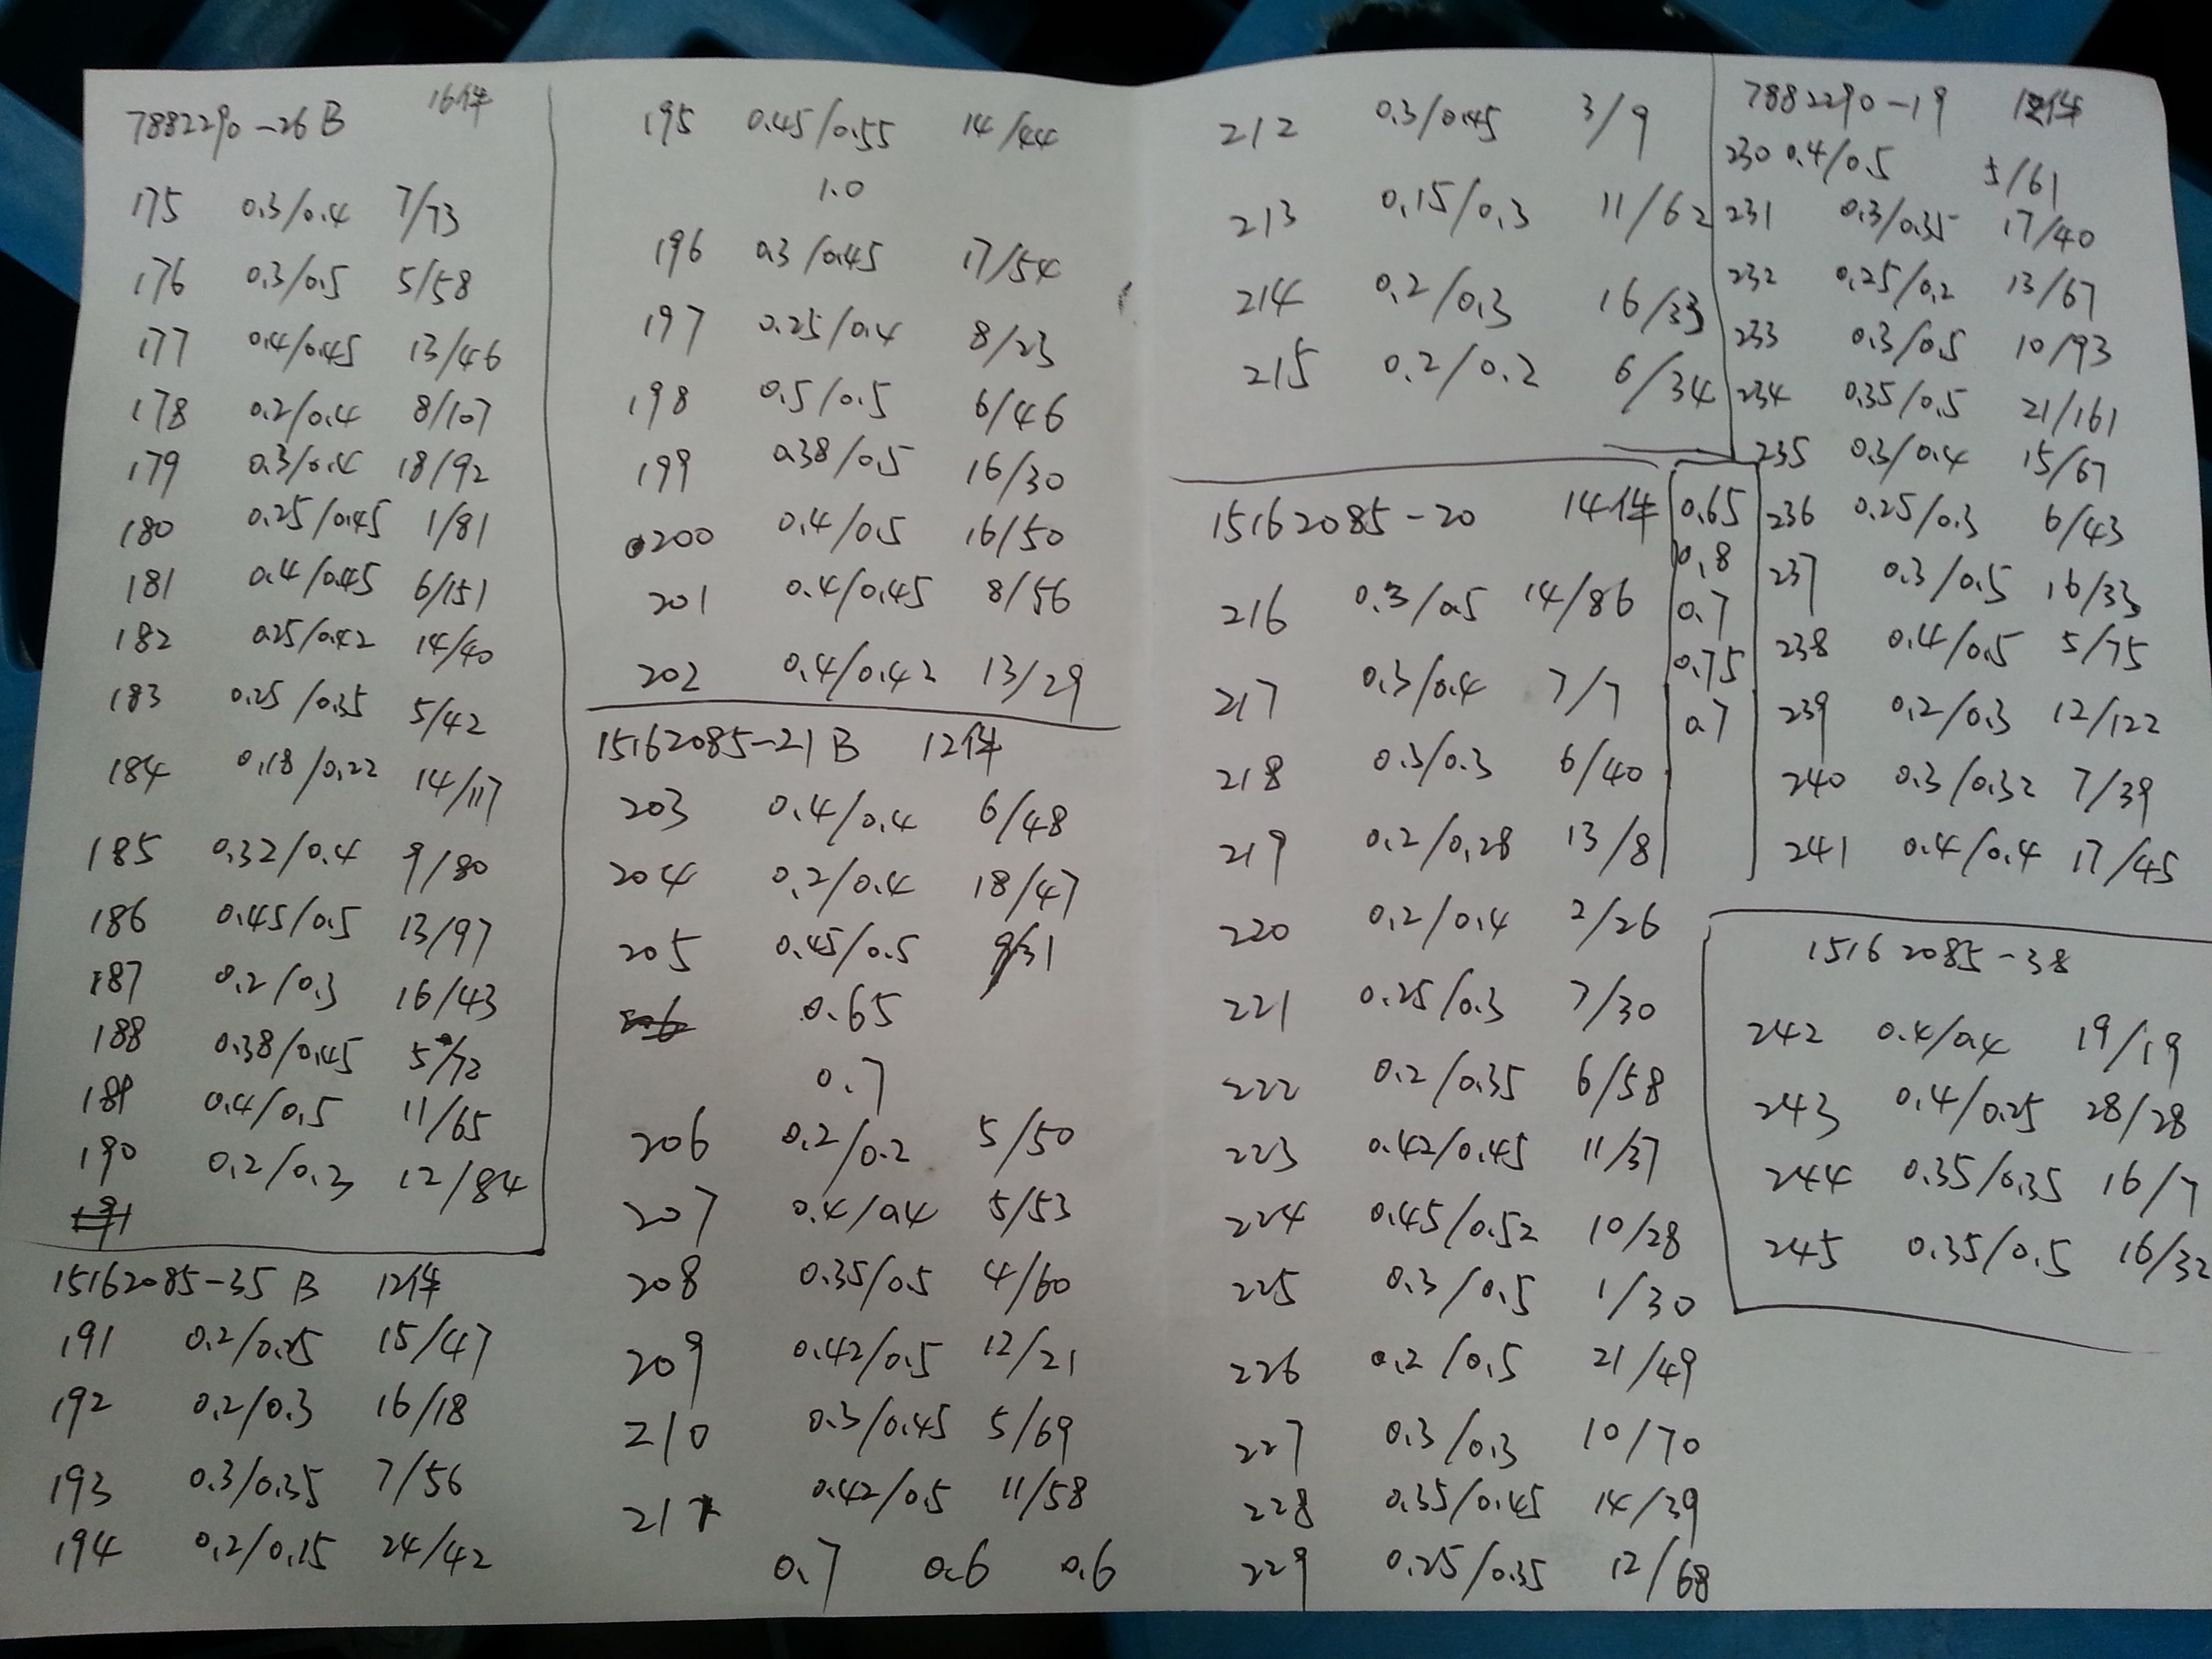 7882290-26B 16件
175 0.3/0.4 7/73
176 0.3/0.5 5/58
177 0.4/0.45 13/46
178 0.2/0.4 8/107
179 0.3/0.4 18/92
180 0.25/0.45 1/81
181 0.4/0.45 6/151
182 0.25/0.42 14/40
183 0.25/0.35 5/42
184 0.18/0.22 14/117
185 0.32/0.4 9/80
186 0.45/0.5 13/97
187 0.2/0.3 16/43
188 0.38/0.45 5/72
189 0.4/0.5 11/65
190 0.2/0.3 12/84
15162085-35 B 12件
191 0.2/0.25 15/47
192 0.2/0.3 16/18
193 0.3/0.35 7/56
194 0.2/0.15 24/42
195 0.45/0.55 14/44
1.0
196 0.3/0.45 17/54
197 0.25/0.4 8/23
198 0.5/0.5 6/46
199 0.38/0.5 16/30
200 0.4/0.5 16/50
201 0.4/0.45 8/56
202 0.4/0.42 13/29
15162085-21B 12件
203 0.4/0.4 6/48
204 0.2/0.4 18/47
205 0.45/0.5 9/31
206 0.65
0.7
206 0.2/0.2 5/50
207 0.4/0.4 5/53
208 0.35/0.5 4/60
209 0.42/0.5 12/21
210 0.3/0.45 5/69
211 0.42/0.5 11/58
0.7 0.6 0.6
212 0.3/0.45 3/9
213 0.15/0.3 11/62
214 0.2/0.3 16/33
215 0.2/0.2 6/34
15162085-20 14件
216 0.3/0.5 14/86
217 0.3/0.4 7/7
218 0.3/0.3 6/40
219 0.2/0.28 13/8
220 0.2/0.4 2/26
221 0.25/0.3 7/30
222 0.2/0.35 6/58
223 0.42/0.45 11/37
224 0.45/0.52 10/28
225 0.3/0.5 1/30
226 0.2/0.5 21/49
227 0.3/0.3 10/70
228 0.35/0.45 14/39
229 0.25/0.35 12/68
0.65
0.8
0.7
0.75
0.7
7882290-19 12件
230 0.4/0.5 5/61
231 0.3/0.35 17/40
232 0.25/0.2 13/67
233 0.3/0.5 10/93
234 0.35/0.5 21/161
235 0.3/0.4 15/67
236 0.25/0.3 6/43
237 0.3/0.5 16/33
238 0.4/0.5 5/75
239 0.2/0.3 12/122
240 0.3/0.32 7/39
241 0.4/0.4 17/45
15162085-38
242 0.4/0.4 19/19
243 0.4/0.25 28/28
244 0.35/0.35 16/7
245 0.35/0.5 16/32